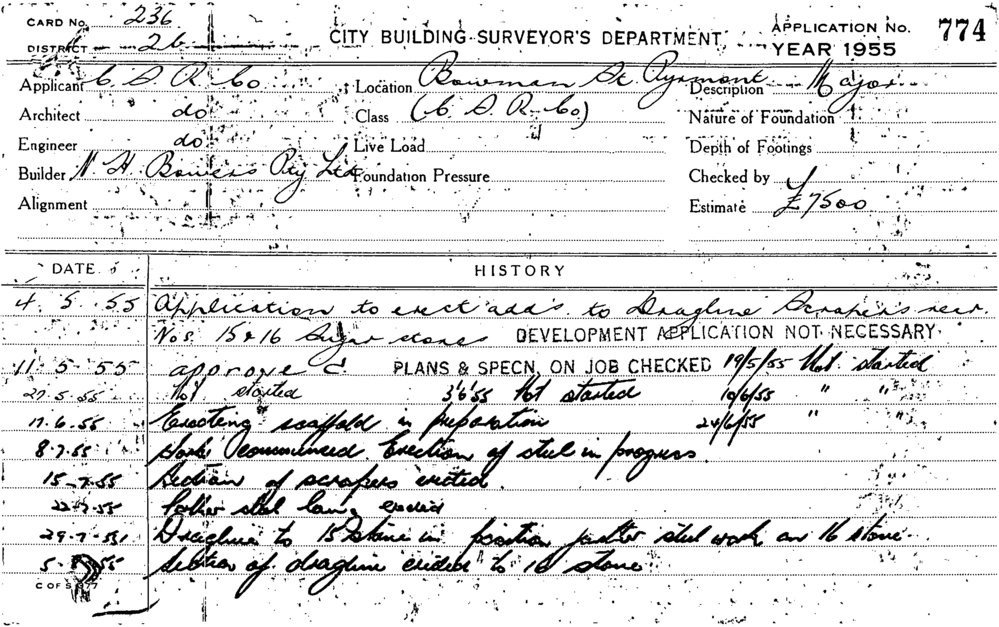 CARD No. 236
DISTRICT 26
CITY BUILDING SURVEYOR'S DEPARTMENT
APPLICATION No. 774
YEAR 1955
Applicant C. S. R. Co Location Bowman St Pyrmont Description Major
Architect do Class (C. S. R. Co) Nature of Foundation
Engineer do Live Load Depth of Footings
Builder N. H. Bowers Pty Ltd Foundation Pressure Checked by
Alignment Estimate £7500
DATE HISTORY
4.5.55 Application to erect adds to Dragline Scrapers near
Nos 15 & 16 Sugar stores DEVELOPMENT APPLICATION NOT NECESSARY
11.5.55 approved PLANS & SPECN, ON JOB CHECKED 19/5/55 Not started
27.5.55 Not started 3/6/55 Not started 10/6/55 " "
17.6.55 Erecting scaffold in preparation 24/6/55 " "
8.7.55 Work commenced. Erection of steel in progress
15-7.55 Section of scrapers erected
22-7.55 steel erected
29-7-55 Dragline to 15 store in position further steel work on 16 store
5. 55 Section of dragline erected to 16 store
C OF S